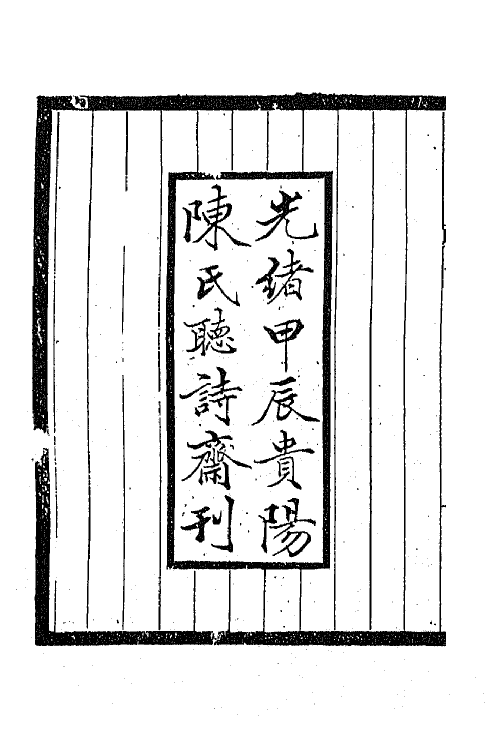 光緒甲辰貴陽
陳氏聽詩齋刊